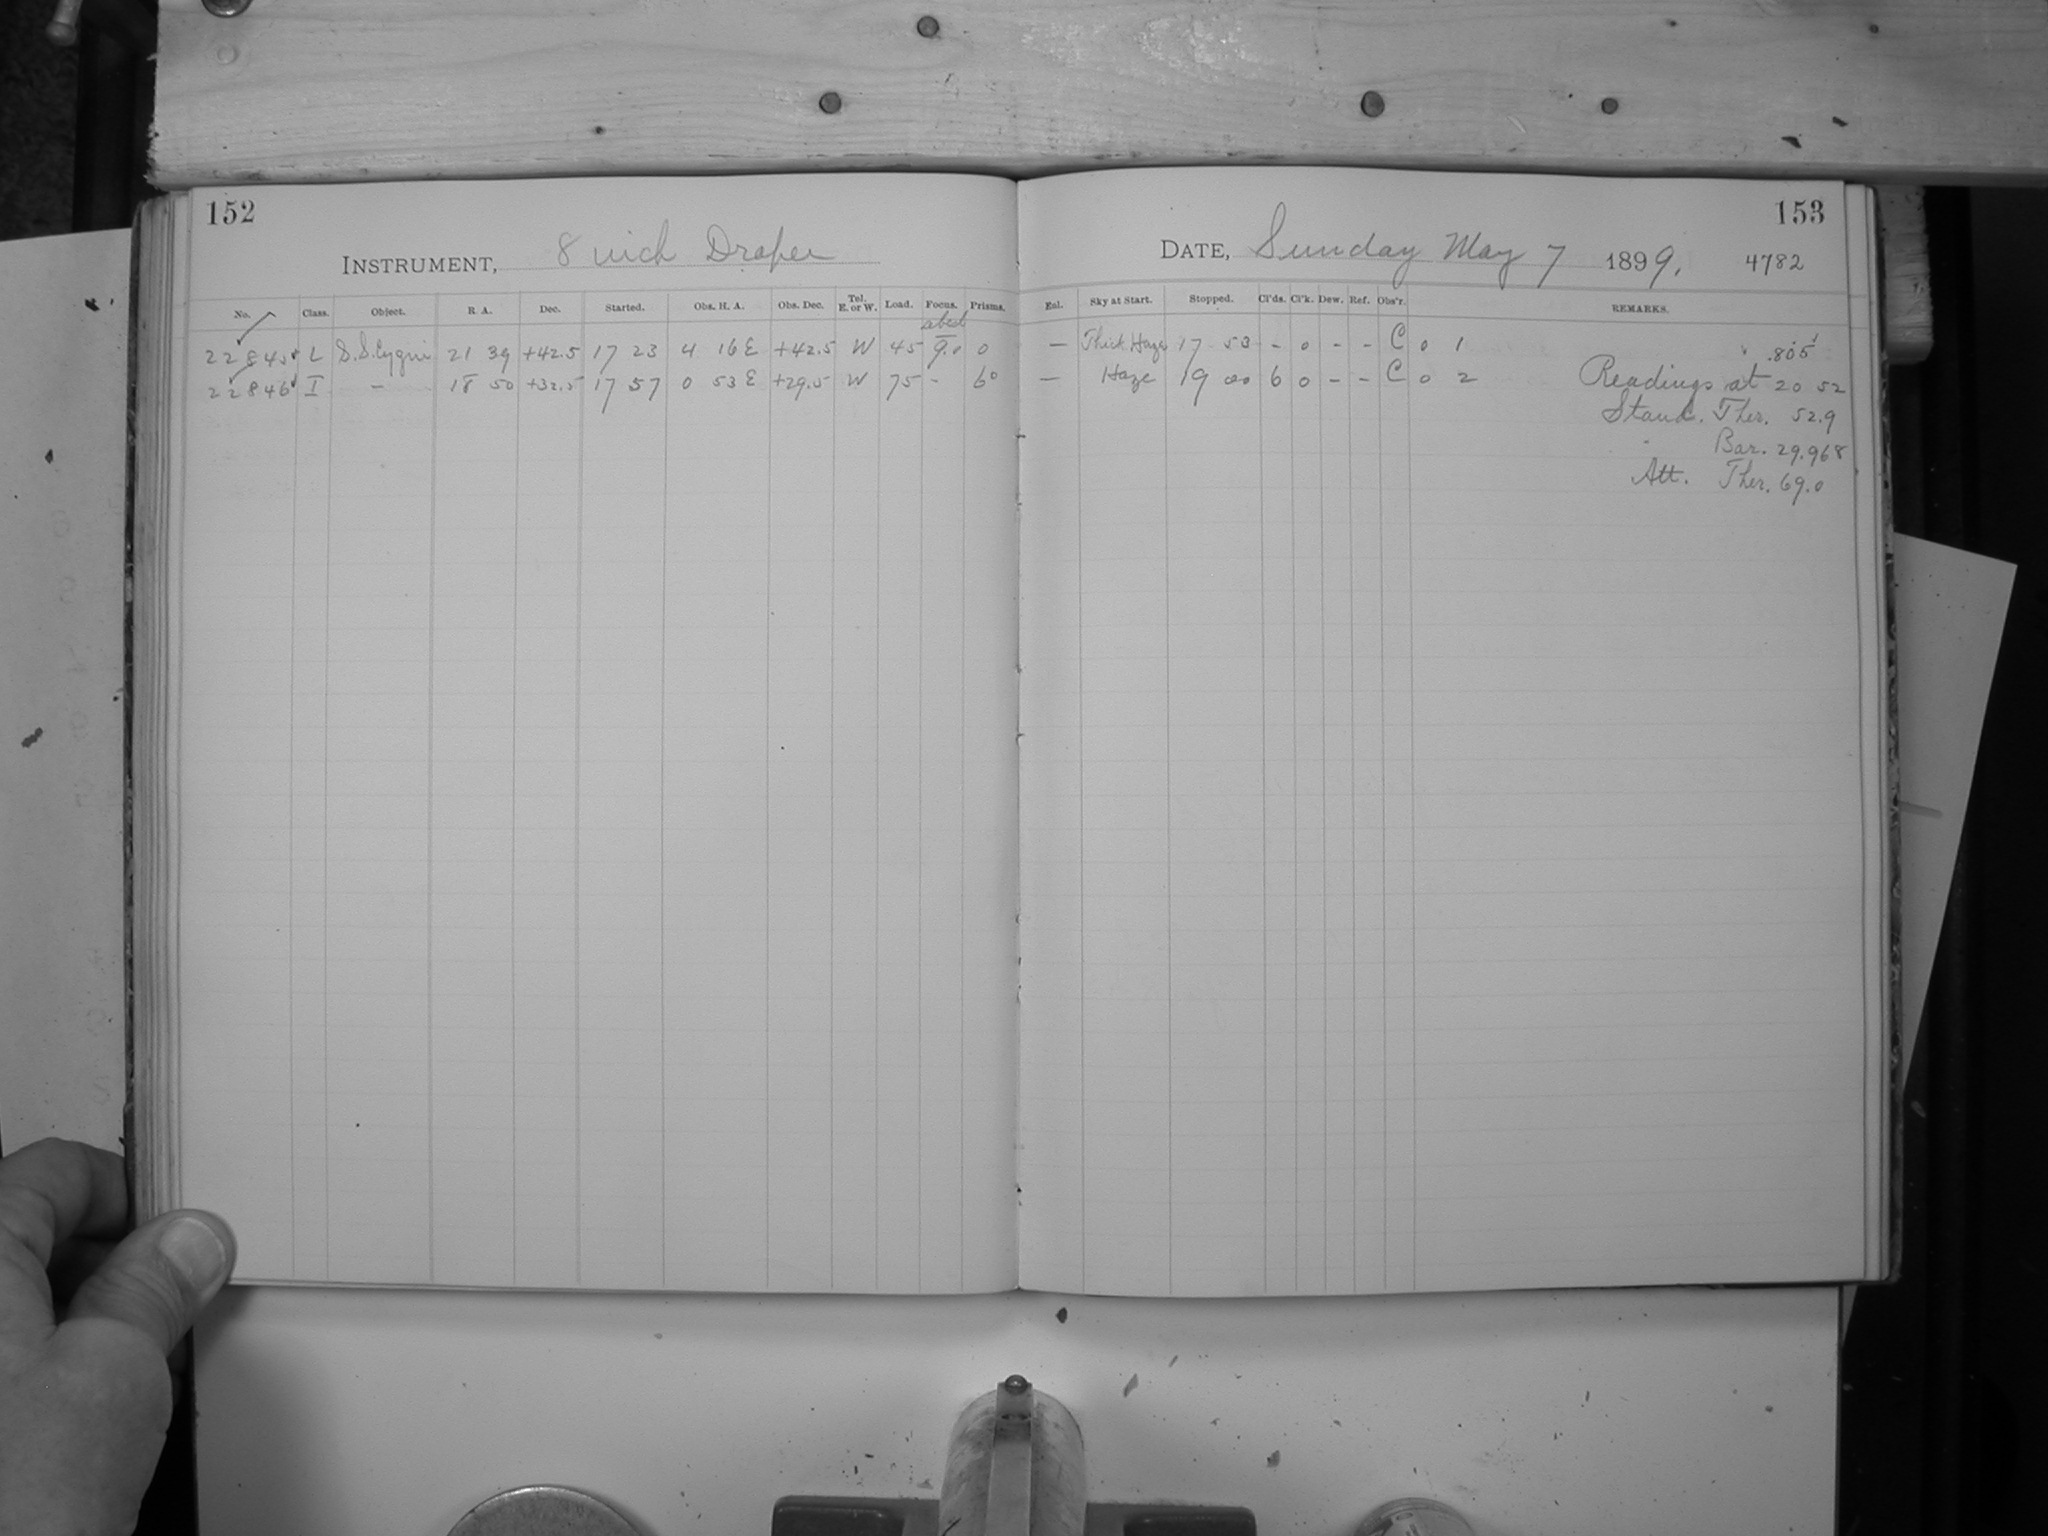 152
INSTRUMENT, 8 inch Draper
No. Class. Object. R. A. Dec. Started. Obs. H. A. Obs. Dec. Tel. E. or W. Load. Focus. Prisms.
22845 L S.S. Cygni 21 39 +42.5 17 23 4 16 E +42.5 W 45 9.0 0
22846 I – 18 50 +32.5 17 57 0 53 E +29.5 W 75 - 60
153
DATE, Sunday May 7 1899. 4782
Enl. Sky at Start. Stopped. Cl'ds. Cl'k. Dew. Ref. Obs'r. REMARKS.
— Thick Haze 17 53 - 0 - - C 0 1 .805
— Haze 19 00 6 0 - - C 0 2 Readings at 20 52
Stand. Ther. 52.9
Bar. 29.968
Att. Ther. 69.0